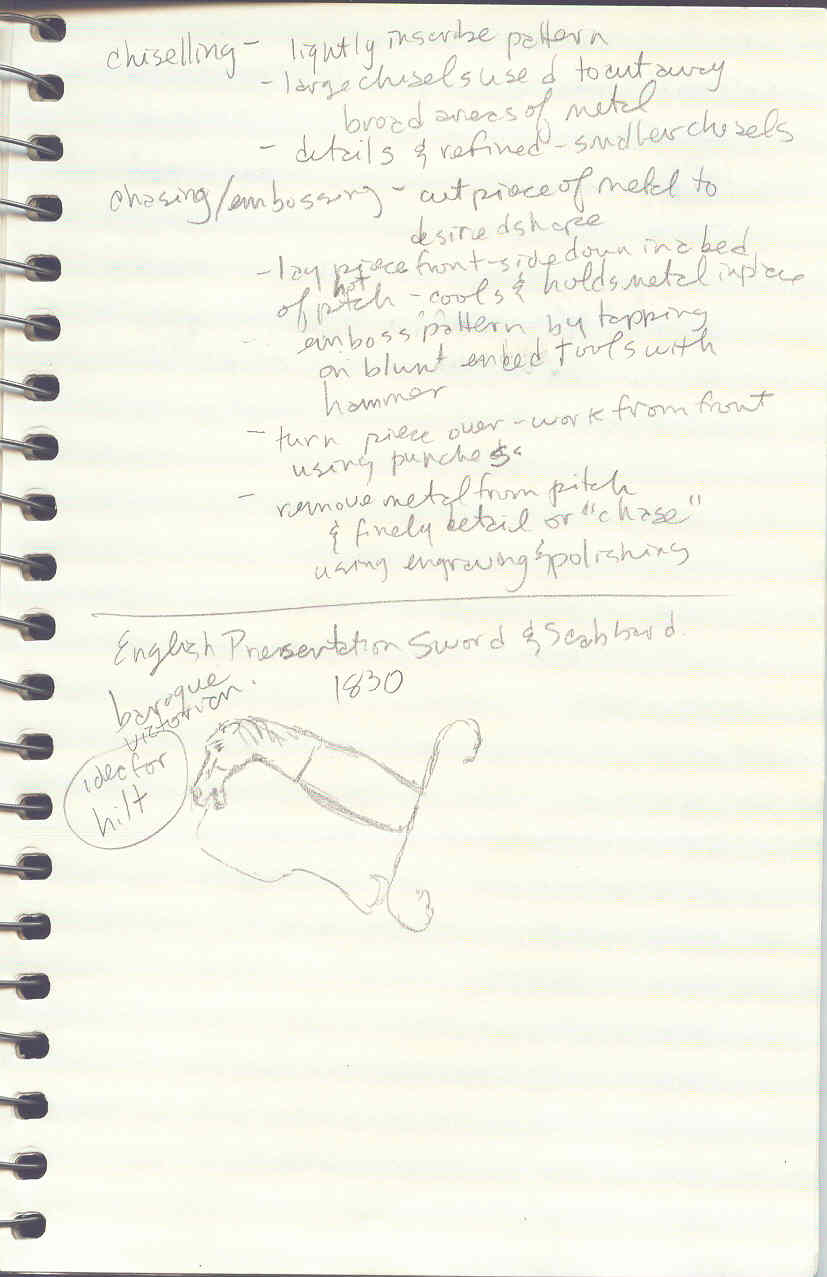 chiselling - lightly inscribe pattern
- large chisels used to cut away
broad areas of metal
- details & refined - smaller chisels
chasing/embossing - cut piece of metal to
desired shape
- lay piece front-side down in a bed
of hot pitch - cools & holds metal in place
- emboss pattern by tapping
on blunt ended tools with
hammer
- turn piece over - work from front
using punches.
- remove metal from pitch
& finely detail or "chase"
using engraving & polishing
English Presentation Sword & Scabbard.
1830
baroque
victorian.
idea for
hilt